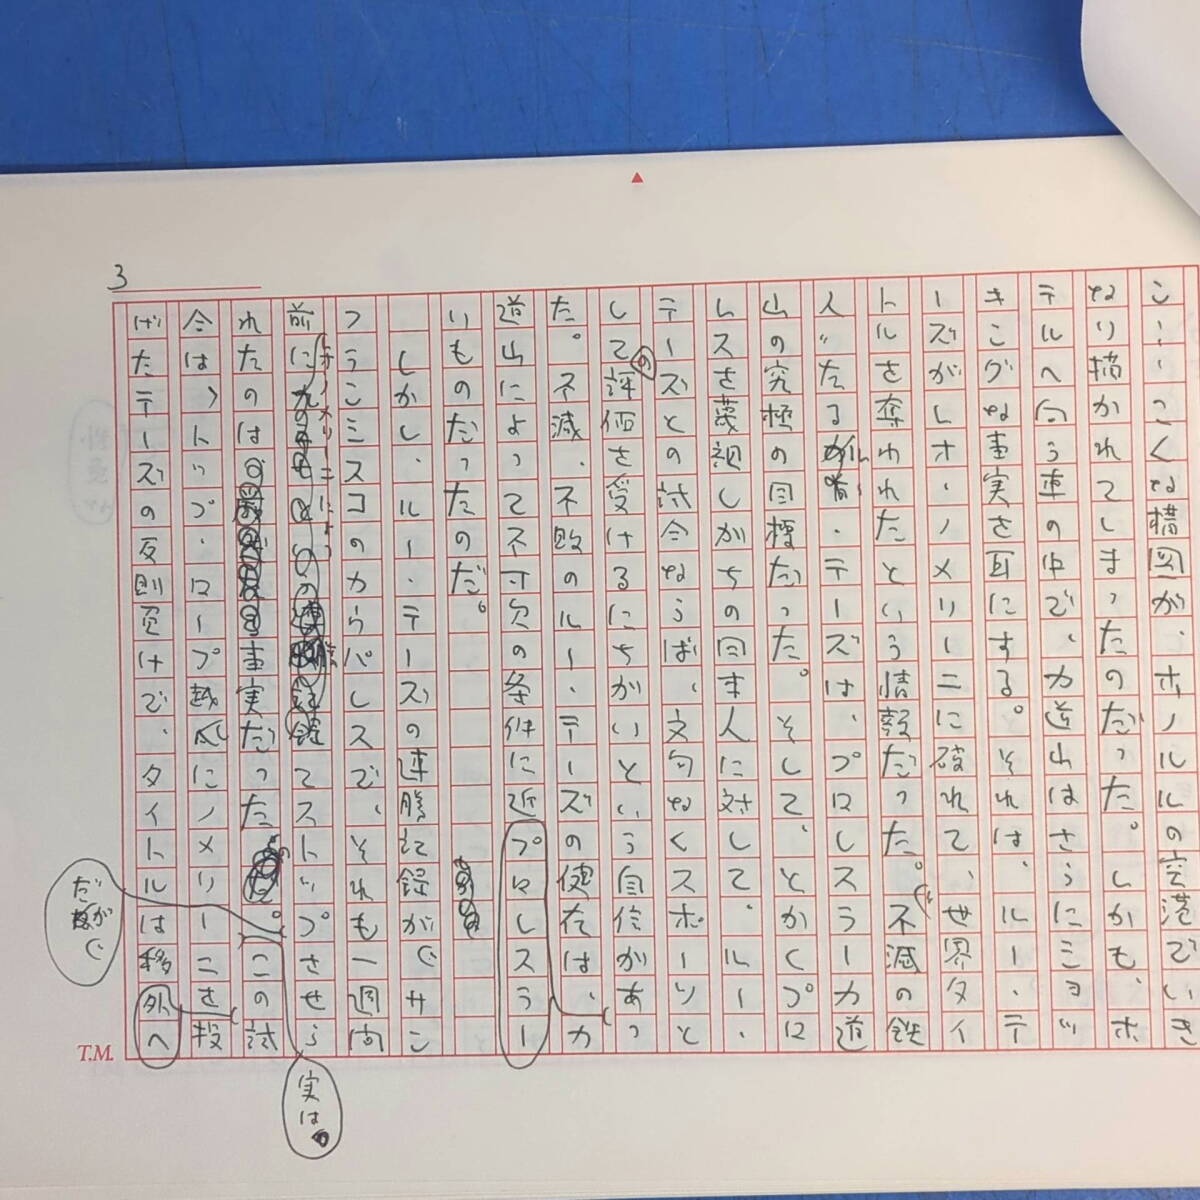 3
こ・・・こくな構図が、ホノルルの空港でいき
なり描かれてしまったのだった。しかも、ホ
テルへ向う車の中で、力道山はさらにショッ
キングな事実を耳にする。それは、ルー・テ
ーズがレオ・ノメリーニに破れて、世界タイ
トルを奪われたという情報だった。不滅の鉄
人たる ルー・テーズは、プロレスラー力道
山の究極の目標だった。そして、とかくプロ
レスを蔑視しがちの日本人に対して、ルー・
テーズとの試合ならば、文句なくスポーツと
しての評価を受けるにちがいという自信があっ
た。不滅、不敗のルー・テーズの健在は、力
道山によって不可欠の条件に近
プロレスラー
いものだったのだ。
しかし、ルー・テーズの連勝記録が サン
フランシスコのカウパレスで、それも一週間
前に
レオ・ノメリーニによっ
てストップさせら
れたのは 事実だった。この試
実は
合は、トップ・ロープ越しにノメリーニを投
だが
げたテーズの反則負けで、タイトルは移
外へ
T.M.